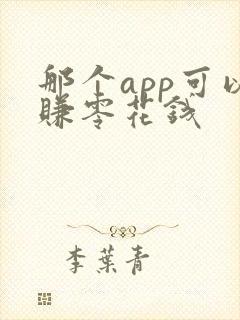 那个app可以
賺零花钱
李葉青